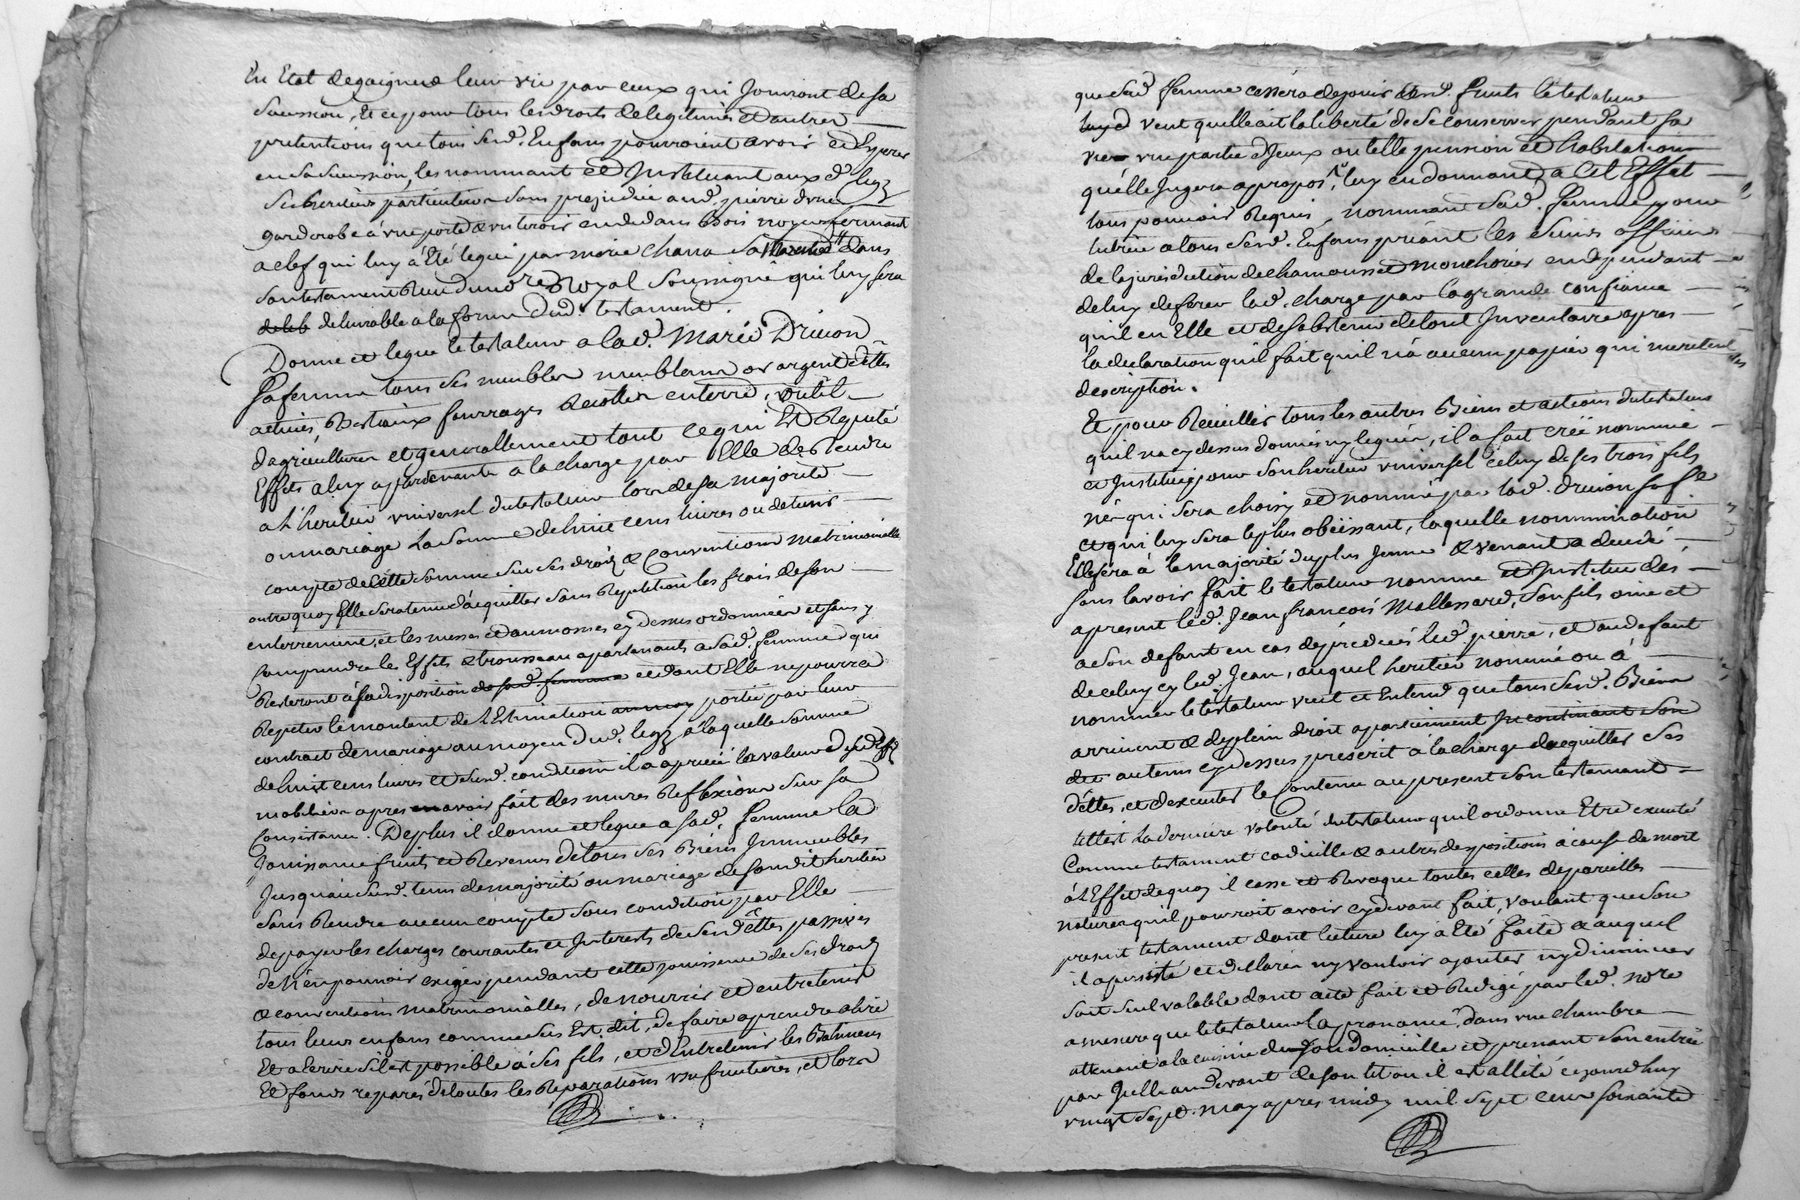 En Etat de gaigner leur vie par ceux qui Jouiront de sa
Sucession, Et ce pour tous les droits de legitimes Et autres
pretentions que tous Sesd. Enfans pourroient avoir et Esperer
en sa Sucession, les nommant et Instituant auxd. legz
Ses heritiers particuliers Sans prejudice aud. pierre d'une
garderobe à une porte & un tiroir en dedans bois noyer fermant
a clef qui luy à Eté leguée par marie Chana Sa dans
Son testament Receu dud. nre Royal Soussigné qui luy sera
delivrable a la forme dud. testament.
Donne et legue le testateur a lad. Marie Drivon
Sa femme tous Ses meubles meublans or argent dettes
actives, Bestiaux fourrages Recoltes en terre, outils
d'agriculture et generallement tout ce qui Est Reputé
Effets a luy apartenants a la charge par Elle de Rendre
a L'heritier universel du testateur lors de sa majorité
ou mariage La Somme de huit cens livres ou de tenir
compte de cette Somme Sur Ses droits & Conventions matrimonialles
outre quoy Elle sera tenue d'acquitter Sans Repetition les frais de son
enterrement, et les messes et aumosnes cy dessus ordonnées et sans y
comprendre les Effets & trousseau apartenants a Sad. femme qui
Resteront à Sa disposition de sad. femme et dont Elle ne pourra
Repeter le montant de L'Estimation portée par leur
contract de mariage au moyen dud. legz à laquelle Somme
de huit cens livres et Susd. conditions il a aprecié la valeur desd. Effets
mobiliers apres avoir fait des mures Reflexions Sur sa
Consistance. De plus il donne et legue a Sad. femme la
Jouissance fruits et Revenus de tous Ses Biens Immeubles
Jusqu'au Susd. tems de majorité ou mariage de Sondit heritier
Sans Rendre aucun compte Sous condition par Elle
de payer les charges courantes et Interests de Ses dettes passives
de n'en pouvoir exiger pendant cette Jouissance de Ses droits
& conventions matrimonialles, de nourrir et entretenir
tous leurs enfans comme dessus Est dit, de faire aprendre à lire
Et a Ecrire S'il est possible à Ses fils, et d'Entretenir les Batimens
Et fonds reparés de toutes les Reparations usufruitieres, et lors
que Sad. femme cessera de jouir desd. fruits le testateur
veut qu'elle ait la liberté de Se conserver pendant sa
vie une partie d'Jceux ou telle pension et habitation
qu'elle Jugera apropos, luy en donnant a Cet Effet
tous pouvoir Requis, nommant Sad. femme pour
tutrice a tous Sesd. Enfans priant les Sieurs officiers
de la jurisdiction de chamousset monchorier en dependant
de luy deferer lad. charge par la grande confiance
qu'il en Elle et de S'abstenir de tout Inventaire apres
la declaration qu'il fait qu'il n'a aucun papier qui meritent
description.
Et pour Recueillir tous les autres Biens et actions du testateur
qu'il n'a cy dessus donnés ny legués, il a fait crée nommé
et Institué pour Son heritier universel celuy de ses trois fils
né qui Sera choisy et nommé par lad. drivon sa fe
et qui luy Sera le plus obeissant, laquelle nommination
Elle fera à la majorité du plus Jeune & venant a deceder
Sans l'avoir fait le testateur nomme et Institue dés
apresent led. Jean françois Mallessard, Son fils ainé et
a Son defaut en cas de predeces led. pierre, et au defaut
de celuy cy led. Jean, auquel heritier nommé ou à
nommer le testateur veut et Entend que tous Sesd. Biens
arrivent & de plein droit apartiennent Incontinant Son
dec au tems cy dessus prescrit à la charge d'acquitter Ses
dettes, et d'executer le Contenu au present Son testament
tel est La derniere volonté du testateur qu'il ordonne Etre executé
Comme testament codicille & autres dispositions à cause de mort
à L'Effet de quoy il casse et Revoque toutes celles de pareilles
natures qu'il pourroit avoir cy devant fait, voulant que Son
present testament dont lecture luy à Eté faite & auquel
il a persisté et declaré n'y vouloir ajouter ny diminuer
Soit Seul valable dont acte fait et Redigé par led. nore
a mesure que le testateur l'a prononcé, dans une chambre
attenant a la cuisine de Son domicille et prenant Son entrée
par Jcelle au devant de son lit ou il est allité ce jourdhuy
vingt Sept. may apres midy mil Sept cens soixante